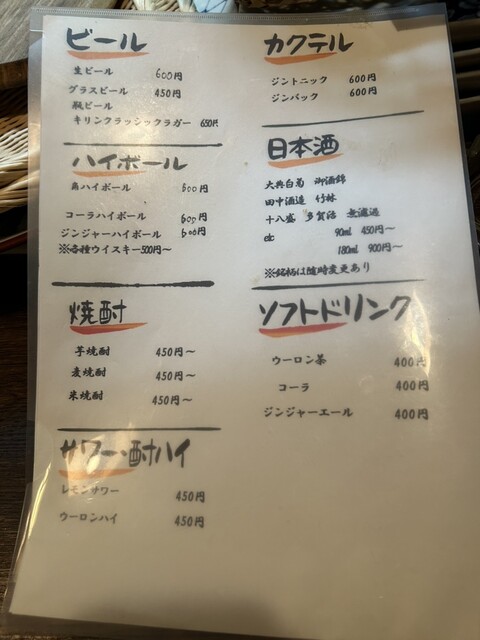 ビール
生ビール 600円
グラスビール 450円
瓶ビール
キリンクラッシックラガー 650円
ハイボール
角ハイボール 600円
コーラハイボール 600円
ジンジャーハイボール 600円
※各種ウイスキー500円〜
焼酎
芋焼酎 450円〜
麦焼酎 450円〜
米焼酎 450円〜
サワー・酎ハイ
レモンサワー 450円
ウーロンハイ 450円
カクテル
ジントニック 600円
ジンバック 600円
日本酒
大典白菊 御酒錦
田中酒造 竹林
十八盛 多賀治 無濾過
etc 90ml 450円〜
180ml 900円〜
※銘柄は随時変更あり
ソフトドリンク
ウーロン茶 400円
コーラ 400円
ジンジャーエール 400円